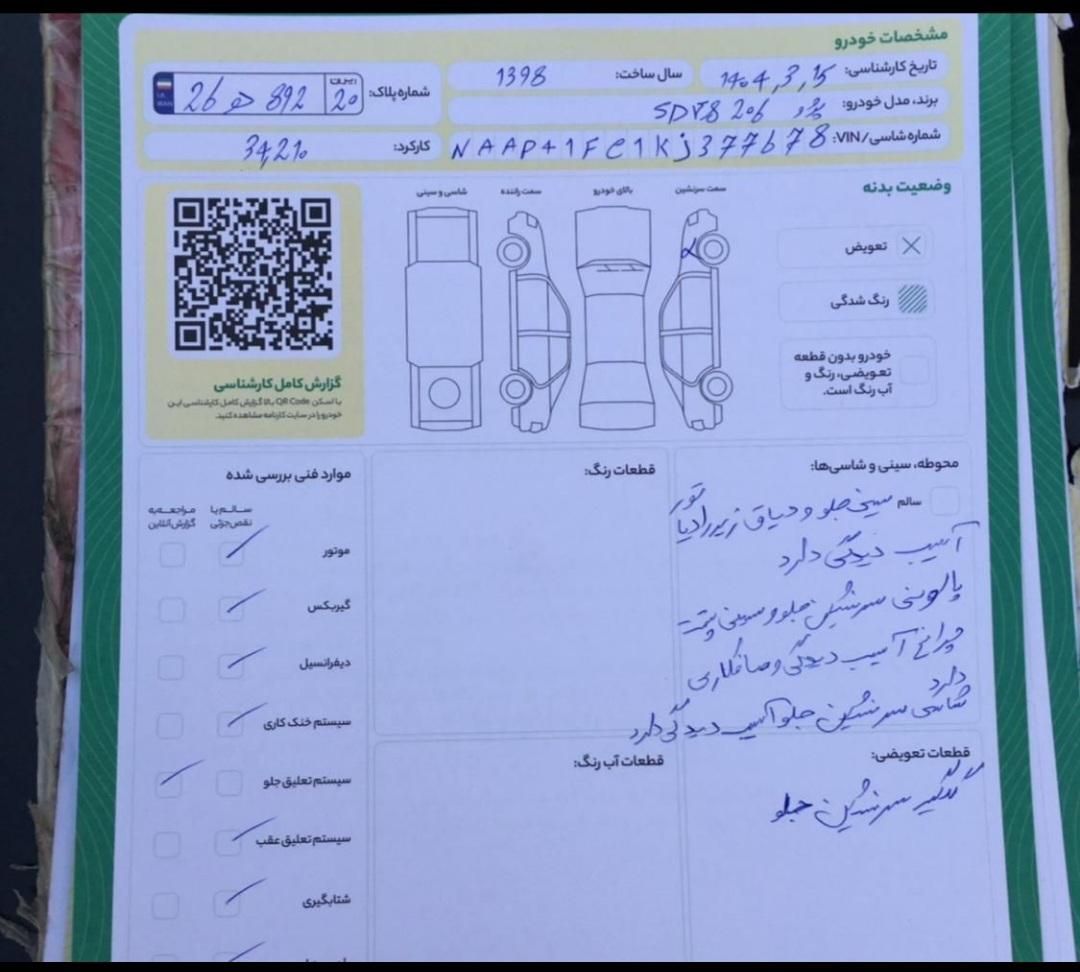 مشخصات خودرو
تاریخ کارشناسی: 1404,3,15
سال ساخت: 1398
شماره پلاک: ایران 20 892 هـ 26
برند، مدل خودرو: پژو 206 SDV8
شماره شاسی/VIN: NAAP41FE1Kj377678
کارکرد: 34,210
وضعیت بدنه
سمت سرنشین
بالای خودرو
سمت راننده
شاسی و سینی
تعویض
رنگ شدگی
خودرو بدون قطعه
تعویضی، رنگ و
آب رنگ است.
گزارش کامل کارشناسی
با اسکن QR Code بالا گزارش کامل کارشناسی این
خودرو را در سایت کارنامه مشاهده کنید.
محوطه، سینی و شاسی‌ها:
سالم
سینی جلو و دیاق زیر رادیاتور
آسیب دیدگی دارد
پالونی سرنشین جلو و سینی پشت
چراغ آسیب دیدگی و صافکاری
دارد
شاسی سرنشین جلو آسیب دیدگی دارد
قطعات رنگ:
قطعات تعویضی:
گلگیر سرنشین جلو
قطعات آب رنگ:
موارد فنی بررسی شده
سالم یا
نقص جزئی
مراجعه به
گزارش آنلاین
موتور
گیربکس
دیفرانسیل
سیستم خنک کاری
سیستم تعلیق جلو
سیستم تعلیق عقب
شتابگیری